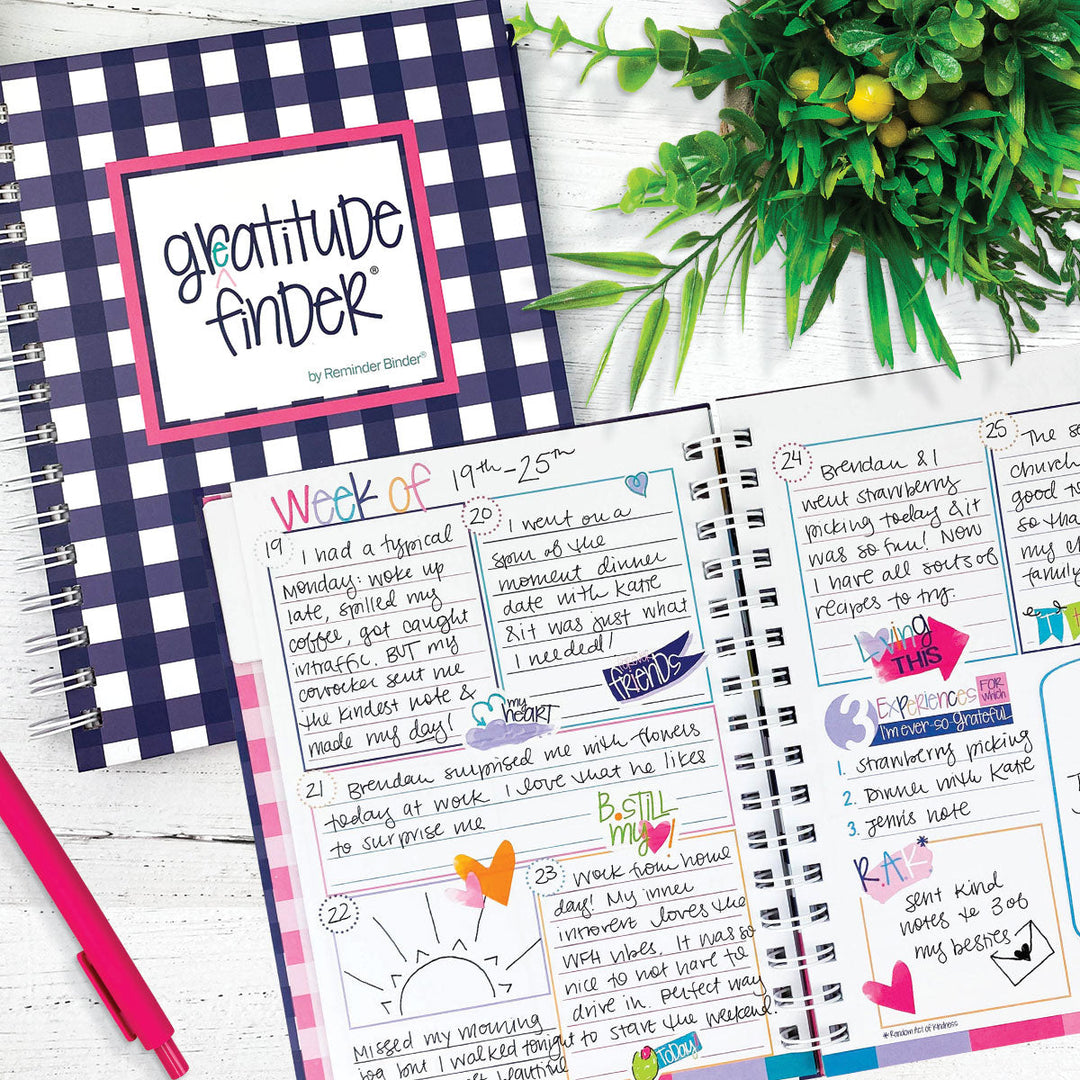 greatitude
finder®
by Reminder Binder®
Week of 19th-25th
19
I had a typical
Monday: woke up
late, spilled my
coffee, got caught
in traffic. BUT my
coworker sent me
the kindest note &
made my day!
my
heart
20
I went on a
spur of the
moment dinner
date with Katie
& it was just what
I needed!
friends
21
Brendan surprised me with flowers
today at work I love that he likes
to surprise me
B.STILL
my!
22
Missed my morning
jog but I walked tonight
beautiful
23
Work from home
day! My inner
introvert loves the
WFH vibes. It was so
nice to not have to
drive in. Perfect way
to start the weekend!
Today!
24
Brendan & I
went strawberry
picking today & it
was so fun! Now
I have all sorts of
recipes to try.
Loving
THIS
25
The
church
good
so tha
my
family
3 Experiences FOR which
I'm ever-so-grateful
1. Strawberry picking
2. Dinner with Katie
3. Jenn's note
R.A.K*
sent kind
notes to 3 of
my besties
*Random Act of Kindness